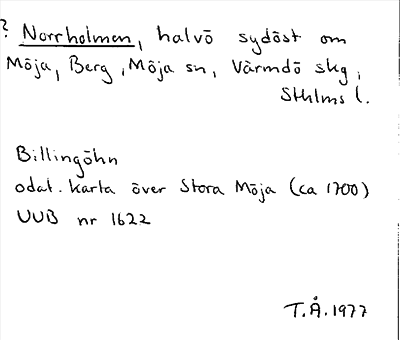 ? Norrholmen, halvö sydöst om
Möja, Berg, Möja sn, Värmdö skg,
Sthlms l.
Billingöhn
odat. karta över Stora Möja (ca 1700)
UUB nr 1622
T.Å. 1977